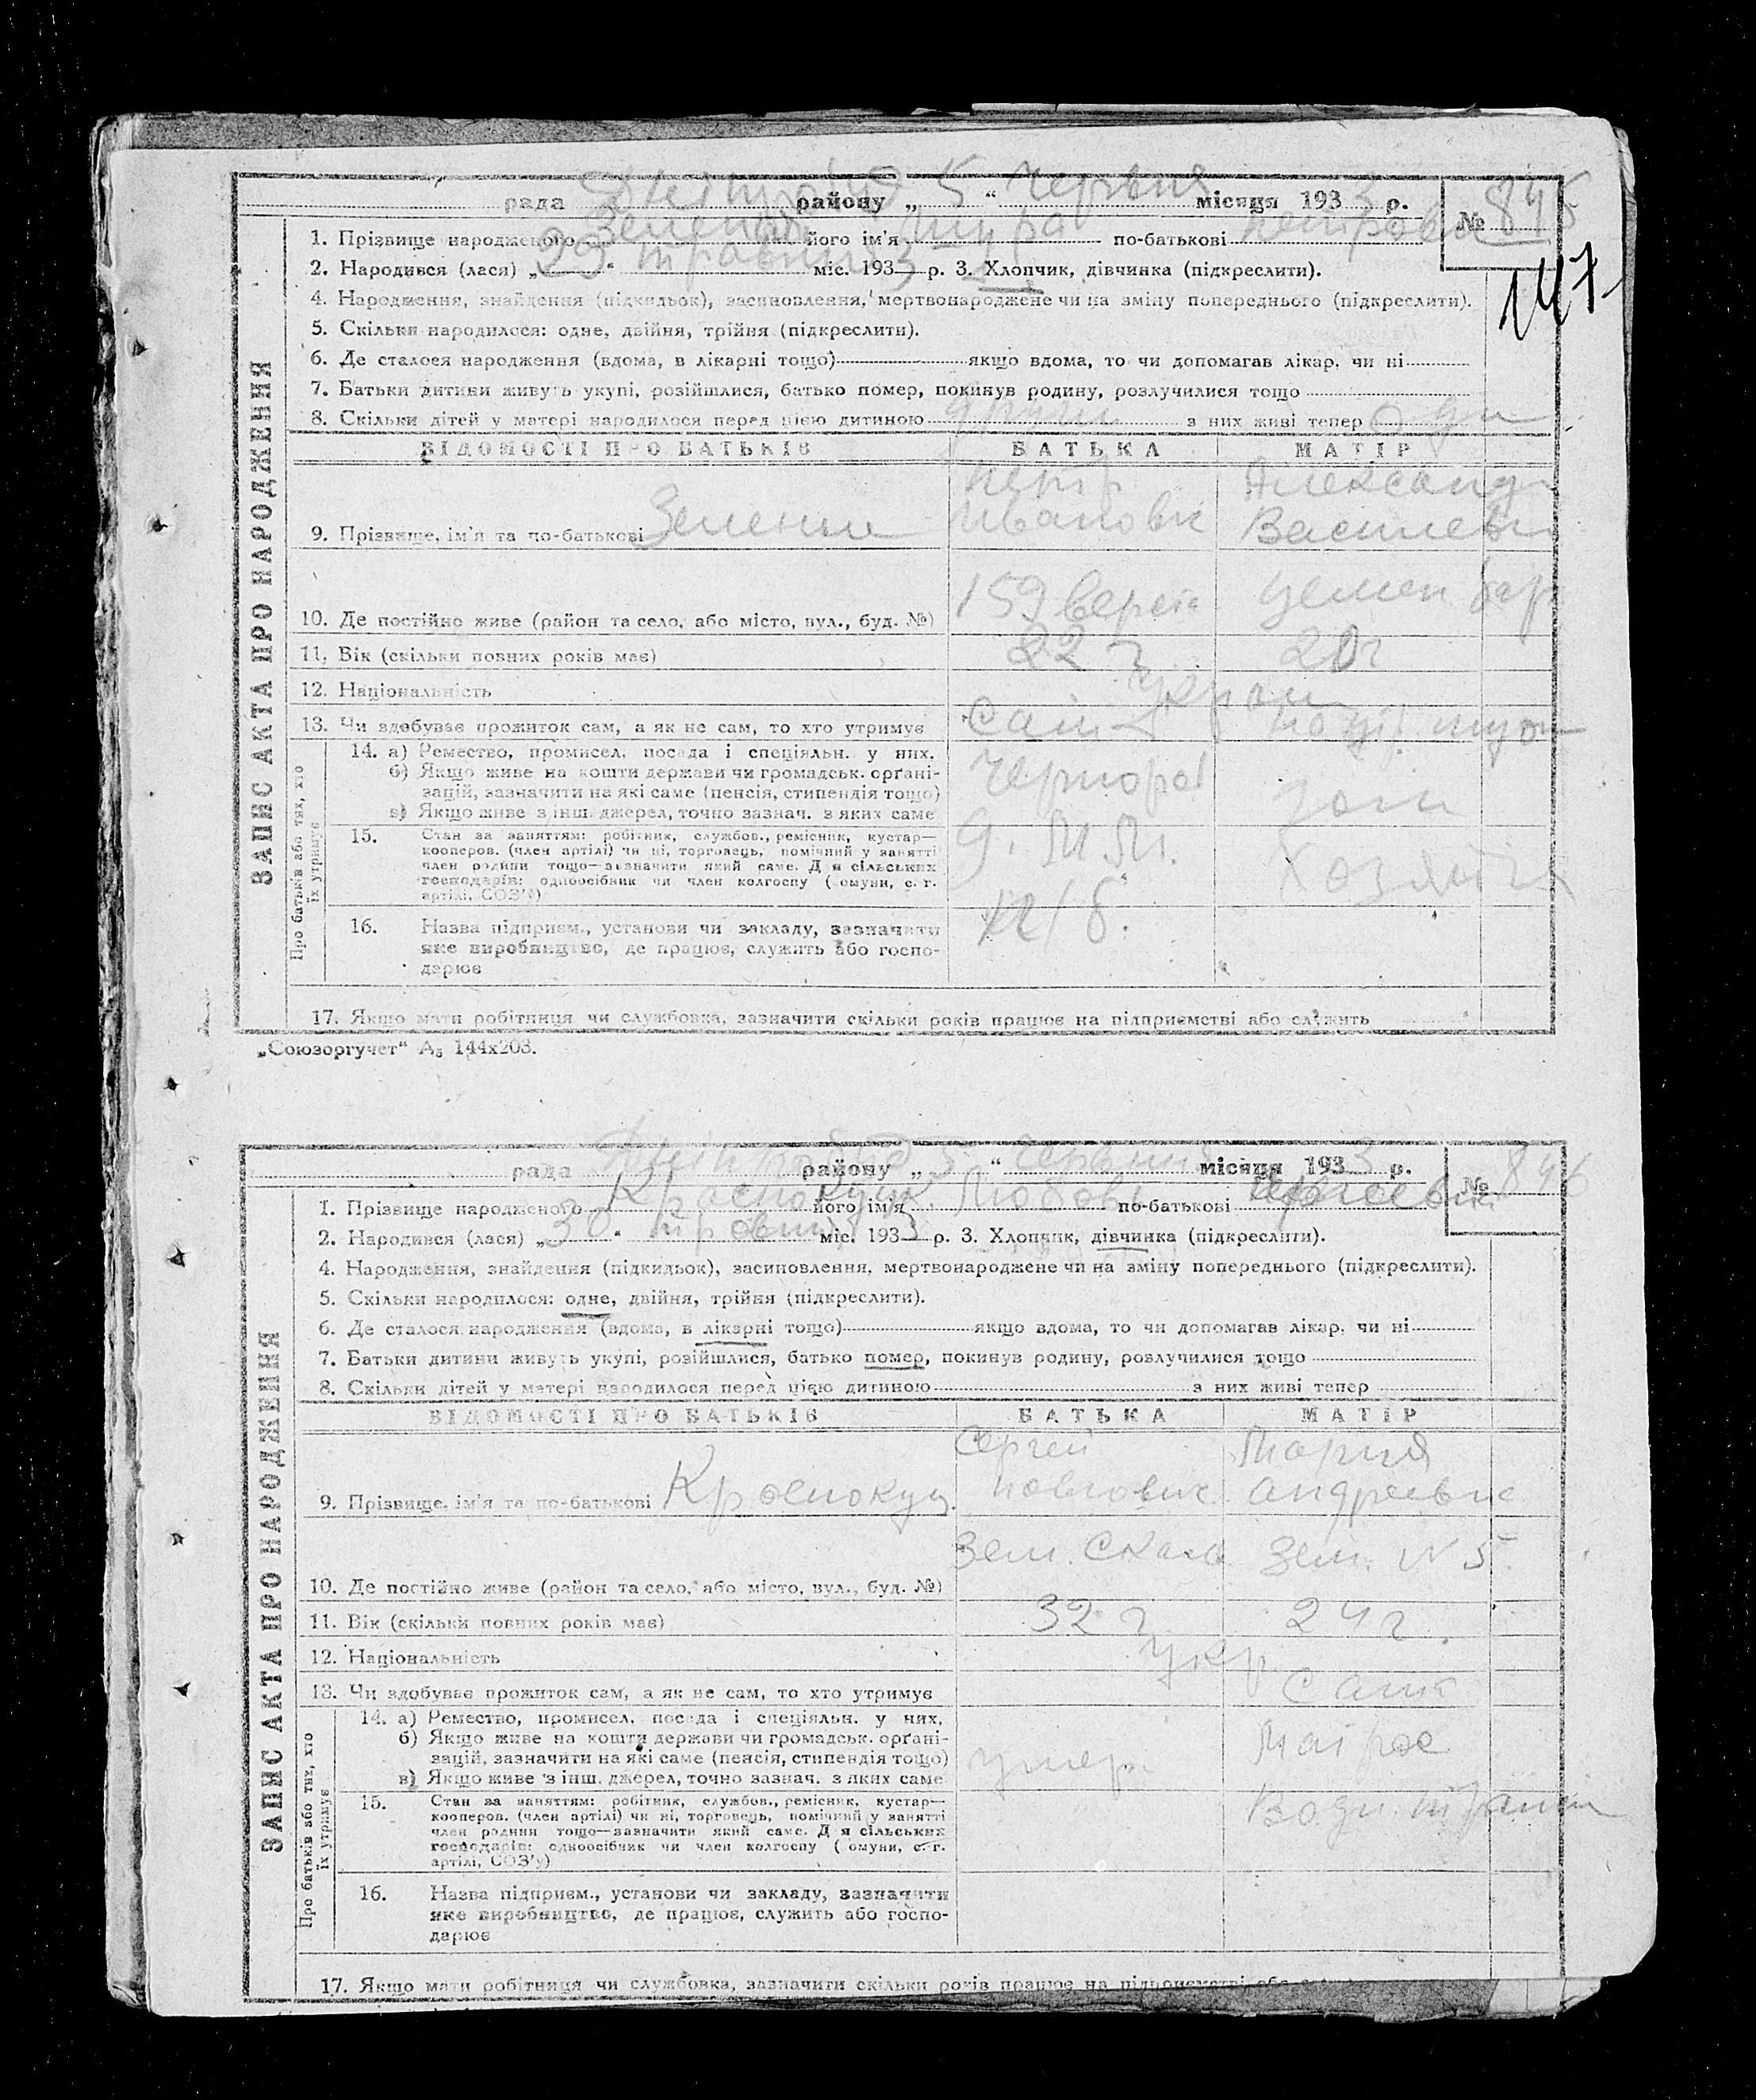 рада району „ 5 “ Червня місяця 1933 р.
№ 845
147
1. Прізвище народженого його ім'я по-батькові Петровна
2. Народився (лася) „ 29 “ травня міс. 1933 р. 3. Хлопчик, дівчинка (підкреслити).
4. Народження, знайдення (підкидьок), засиновлення, мертвонароджене чи на зміну попереднього (підкреслити).
5. Скільки народилося: одне, двійня, трійня (підкреслити).
6. Де сталося народження (вдома, в лікарні тощо) якщо вдома, то чи допомагав лікар, чи ні
7. Батьки дитини живуть укупі, розійшлися, батько помер, покинув родину, розлучилися тощо
8. Скільки дітей у матері народилося перед цією дитиною з них живі тепер
ВІДОМОСТІ ПРО БАТЬКІВ БАТЬКА МАТІР
Петр Александ
9. Прізвище, ім'я та по-батькові Ивановic Василевн
159 верста
10. Де постійно живе (район та село, або місто, вул., буд. №)
11. Вік (скільки повних років має) 22 г 20 г
12. Національність Украин
13. Чи здобуває прожиток сам, а як не сам, то хто утримує Сам
14. а) Ремество, промисел, посада і спеціяльн. у них. Чернораб
б) Якщо живе на кошти держави чи громадськ. орґані-
зацій, зазначити на які саме (пенсія, стипендія тощо) Дом
в) Якщо живе з інш. джерел, точно зазнач. з яких саме
15. Стан за заняттям: робітник, службов., ремісник, кустар—
кооперов. (член артілі) чи ні, торговець, помічний у занятті
член родини тощо—зазначити який саме. Для сільських Хозяйка
господарів: одноосібник чи член колгоспу (комуни, с.-г.
артілі, СОЗ'у)
16. Назва підприєм., установи чи закладу, зазначити
яке виробництво, де працює, служить або госпо-
дарює
17. Якщо мати робітниця чи службовка, зазначити скільки років працює на підприємстві або служить
„Союзоргучет“ А₅ 144х203.
ЗАПИС АКТА ПРО НАРОДЖЕННЯ
Про батьків або тих, хто
їх утримує
рада району „ 5 “ Червня місяця 1933 р.
№ 846
1. Прізвище народженого Краснокуц його ім'я Любовь по-батькові
2. Народився (лася) „ 30 “ травня міс. 1933 р. 3. Хлопчик, дівчинка (підкреслити).
4. Народження, знайдення (підкидьок), засиновлення, мертвонароджене чи на зміну попереднього (підкреслити).
5. Скільки народилося: одне, двійня, трійня (підкреслити).
6. Де сталося народження (вдома, в лікарні тощо) якщо вдома, то чи допомагав лікар, чи ні
7. Батьки дитини живуть укупі, розійшлися, батько помер, покинув родину, розлучилися тощо
8. Скільки дітей у матері народилося перед цією дитиною з них живі тепер
ВІДОМОСТІ ПРО БАТЬКІВ БАТЬКА МАТІР
Сергей Мария
9. Прізвище, ім'я та по-батькові Краснокуц Павлович Андреевне
Зем. Зем. № 5
10. Де постійно живе (район та село, або місто, вул., буд. №)
11. Вік (скільки повних років має) 32 г 24 г.
12. Національність укр.
13. Чи здобуває прожиток сам, а як не сам, то хто утримує Сама
14. а) Ремество, промисел, посада і спеціяльн. у них,
б) Якщо живе на кошти держави чи громадськ. орґані- умер Матрос
зацій, зазначити на які саме (пенсія, стипендія тощо)
в) Якщо живе з інш. джерел, точно зазнач. з яких саме
15. Стан за заняттям: робітник, службов., ремісник, кустар— Водн.
кооперов. (член артілі) чи ні, торговець, помічний у занятті
член родини тощо—зазначити який саме. Для сільських
господарів: одноосібник чи член колгоспу (комуни, с.-г.
артілі, СОЗ'у)
16. Назва підприєм., установи чи закладу, зазначити
яке виробництво, де працює, служить або госпо-
дарює
17. Якщо мати робітниця чи службовка, зазначити скільки років працює на підприємстві або
ЗАПИС АКТА ПРО НАРОДЖЕННЯ
Про батьків або тих, хто
їх утримує